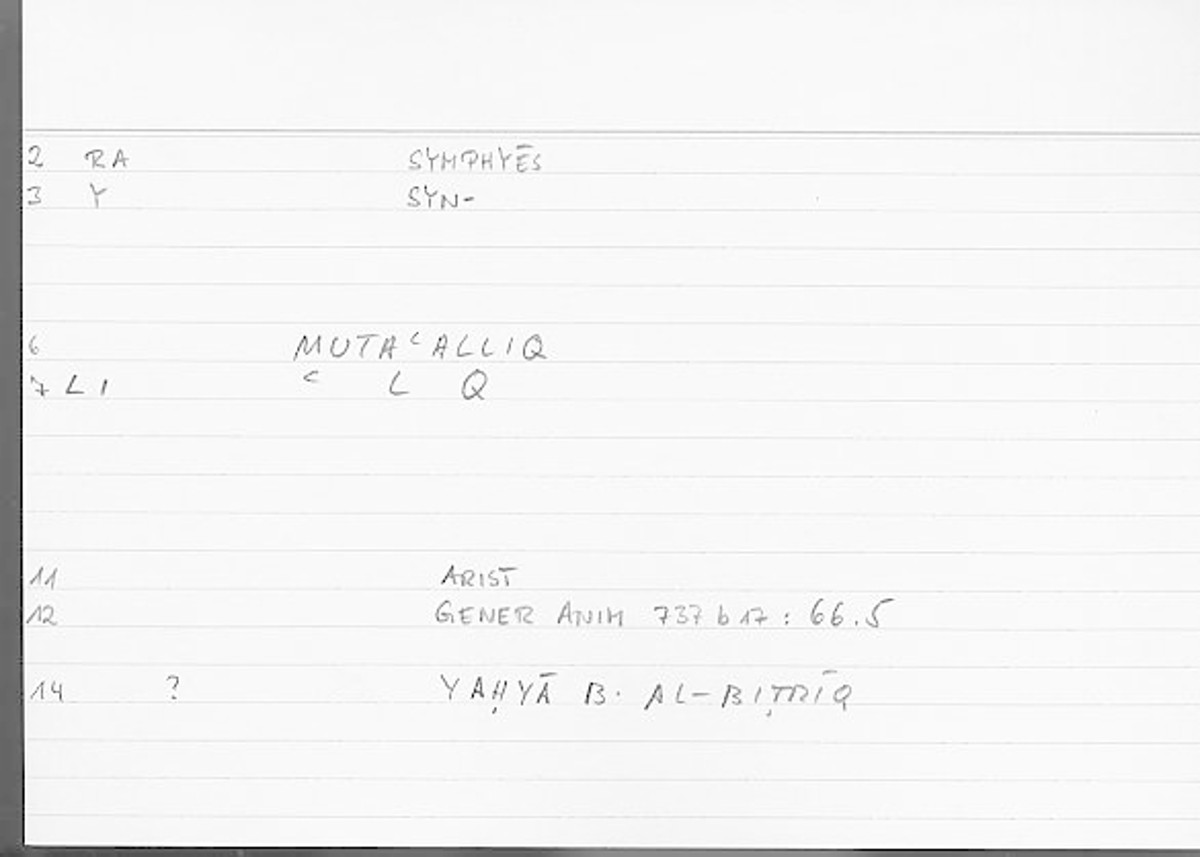 2 RA SYMPHYĒS
3 Y SYN-
6 MUTAʿALLIQ
7 LI ʿ L Q
11 ARIST
12 GENER ANIM 737 b 17 : 66.5
14 ? YAḤYĀ B. AL-BIṬRĪQ